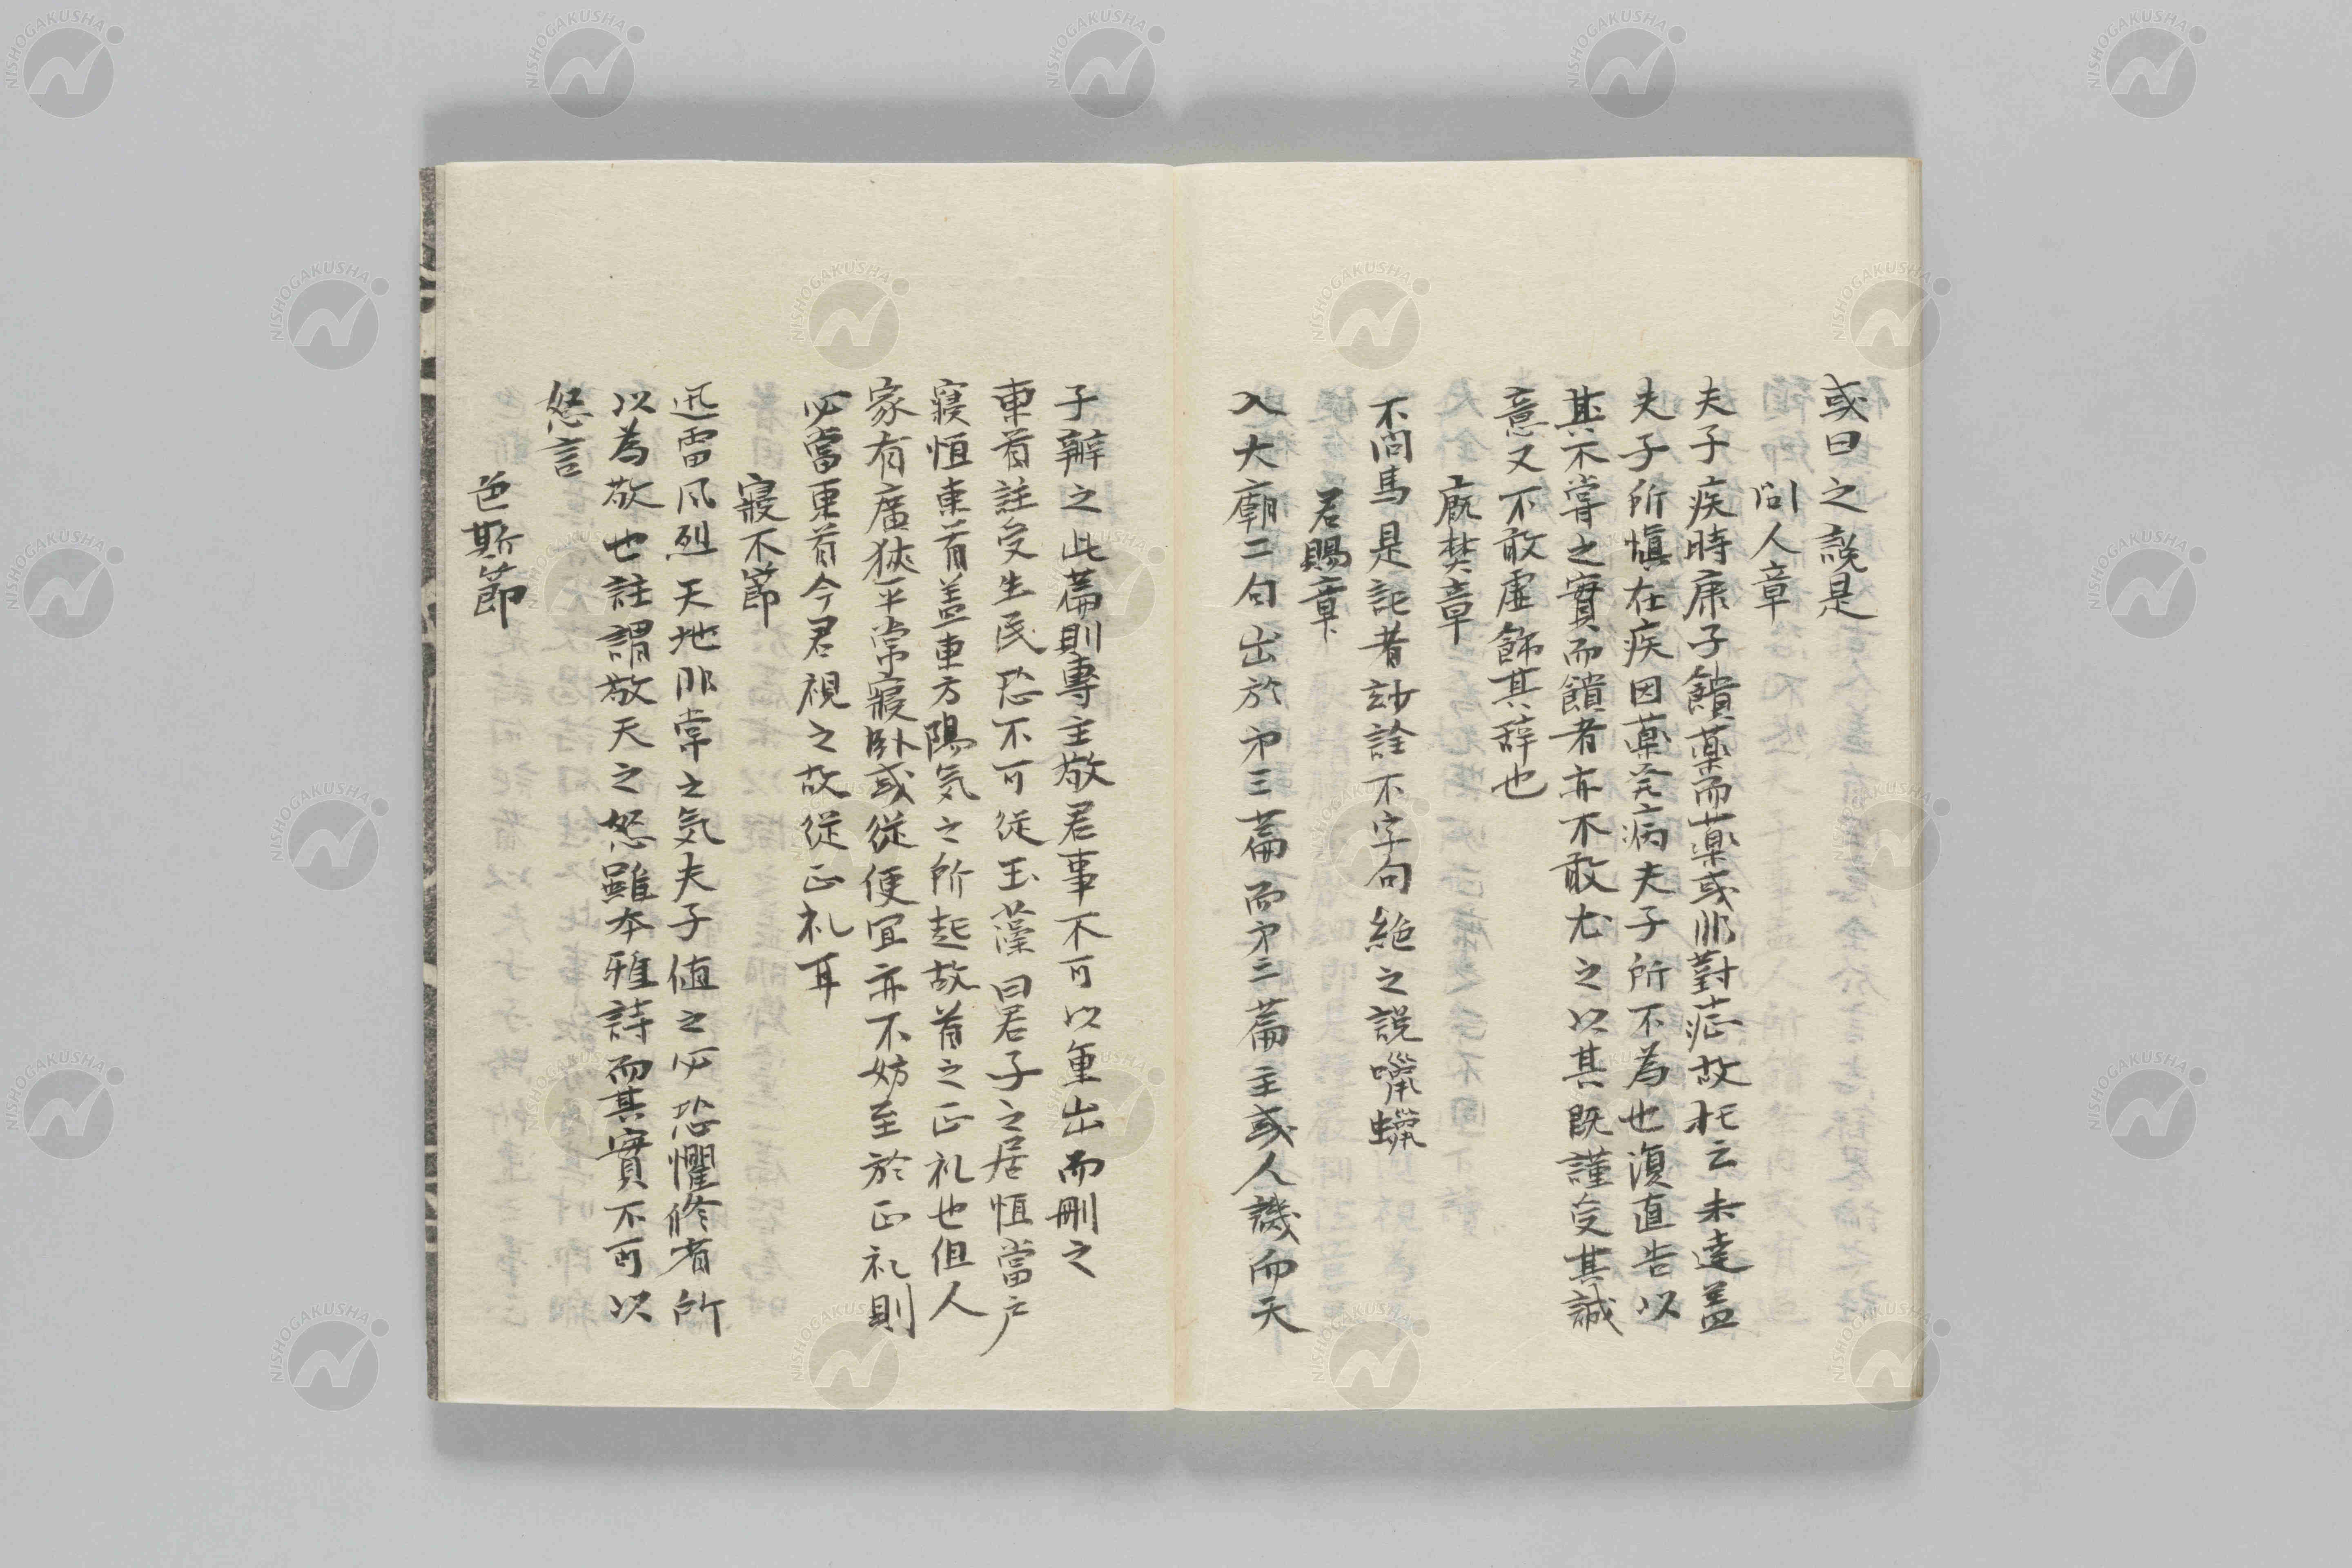 或曰之説是
問人章
夫子疾時康子饋薬而薬或非對症故托云未達蓋
夫子所愼在疾因薬完病夫子所不為也須直告以
其不嘗之實而饋者亦不敢尤之以其既謹受其誠
意又不敢虚飾其辞也
廐焚章
不問馬是記者玅詮不字句絶之説嚼蠟
君賜章
入大廟二句出於㐧三篇而㐧三篇主或人譏而夫
子辨之此篇則專主敬君事不可以重出而刪之
東首註受生氏恐不可従玉藻曰君子之居恒當戸
寝恒東首蓋東方陽気之所起故首之正礼也但人
家有廣狹平常寢臥或従便宜亦不妨至於正礼則
必當東首今君視之故従正礼耳
寢不節
迅雷風烈天地非常之気夫子値之必恐懼修省所
以為敬也註謂敬天之怒雖本雅詩而其實不可以
怒言
色斯節
NISHOGAKUSHA